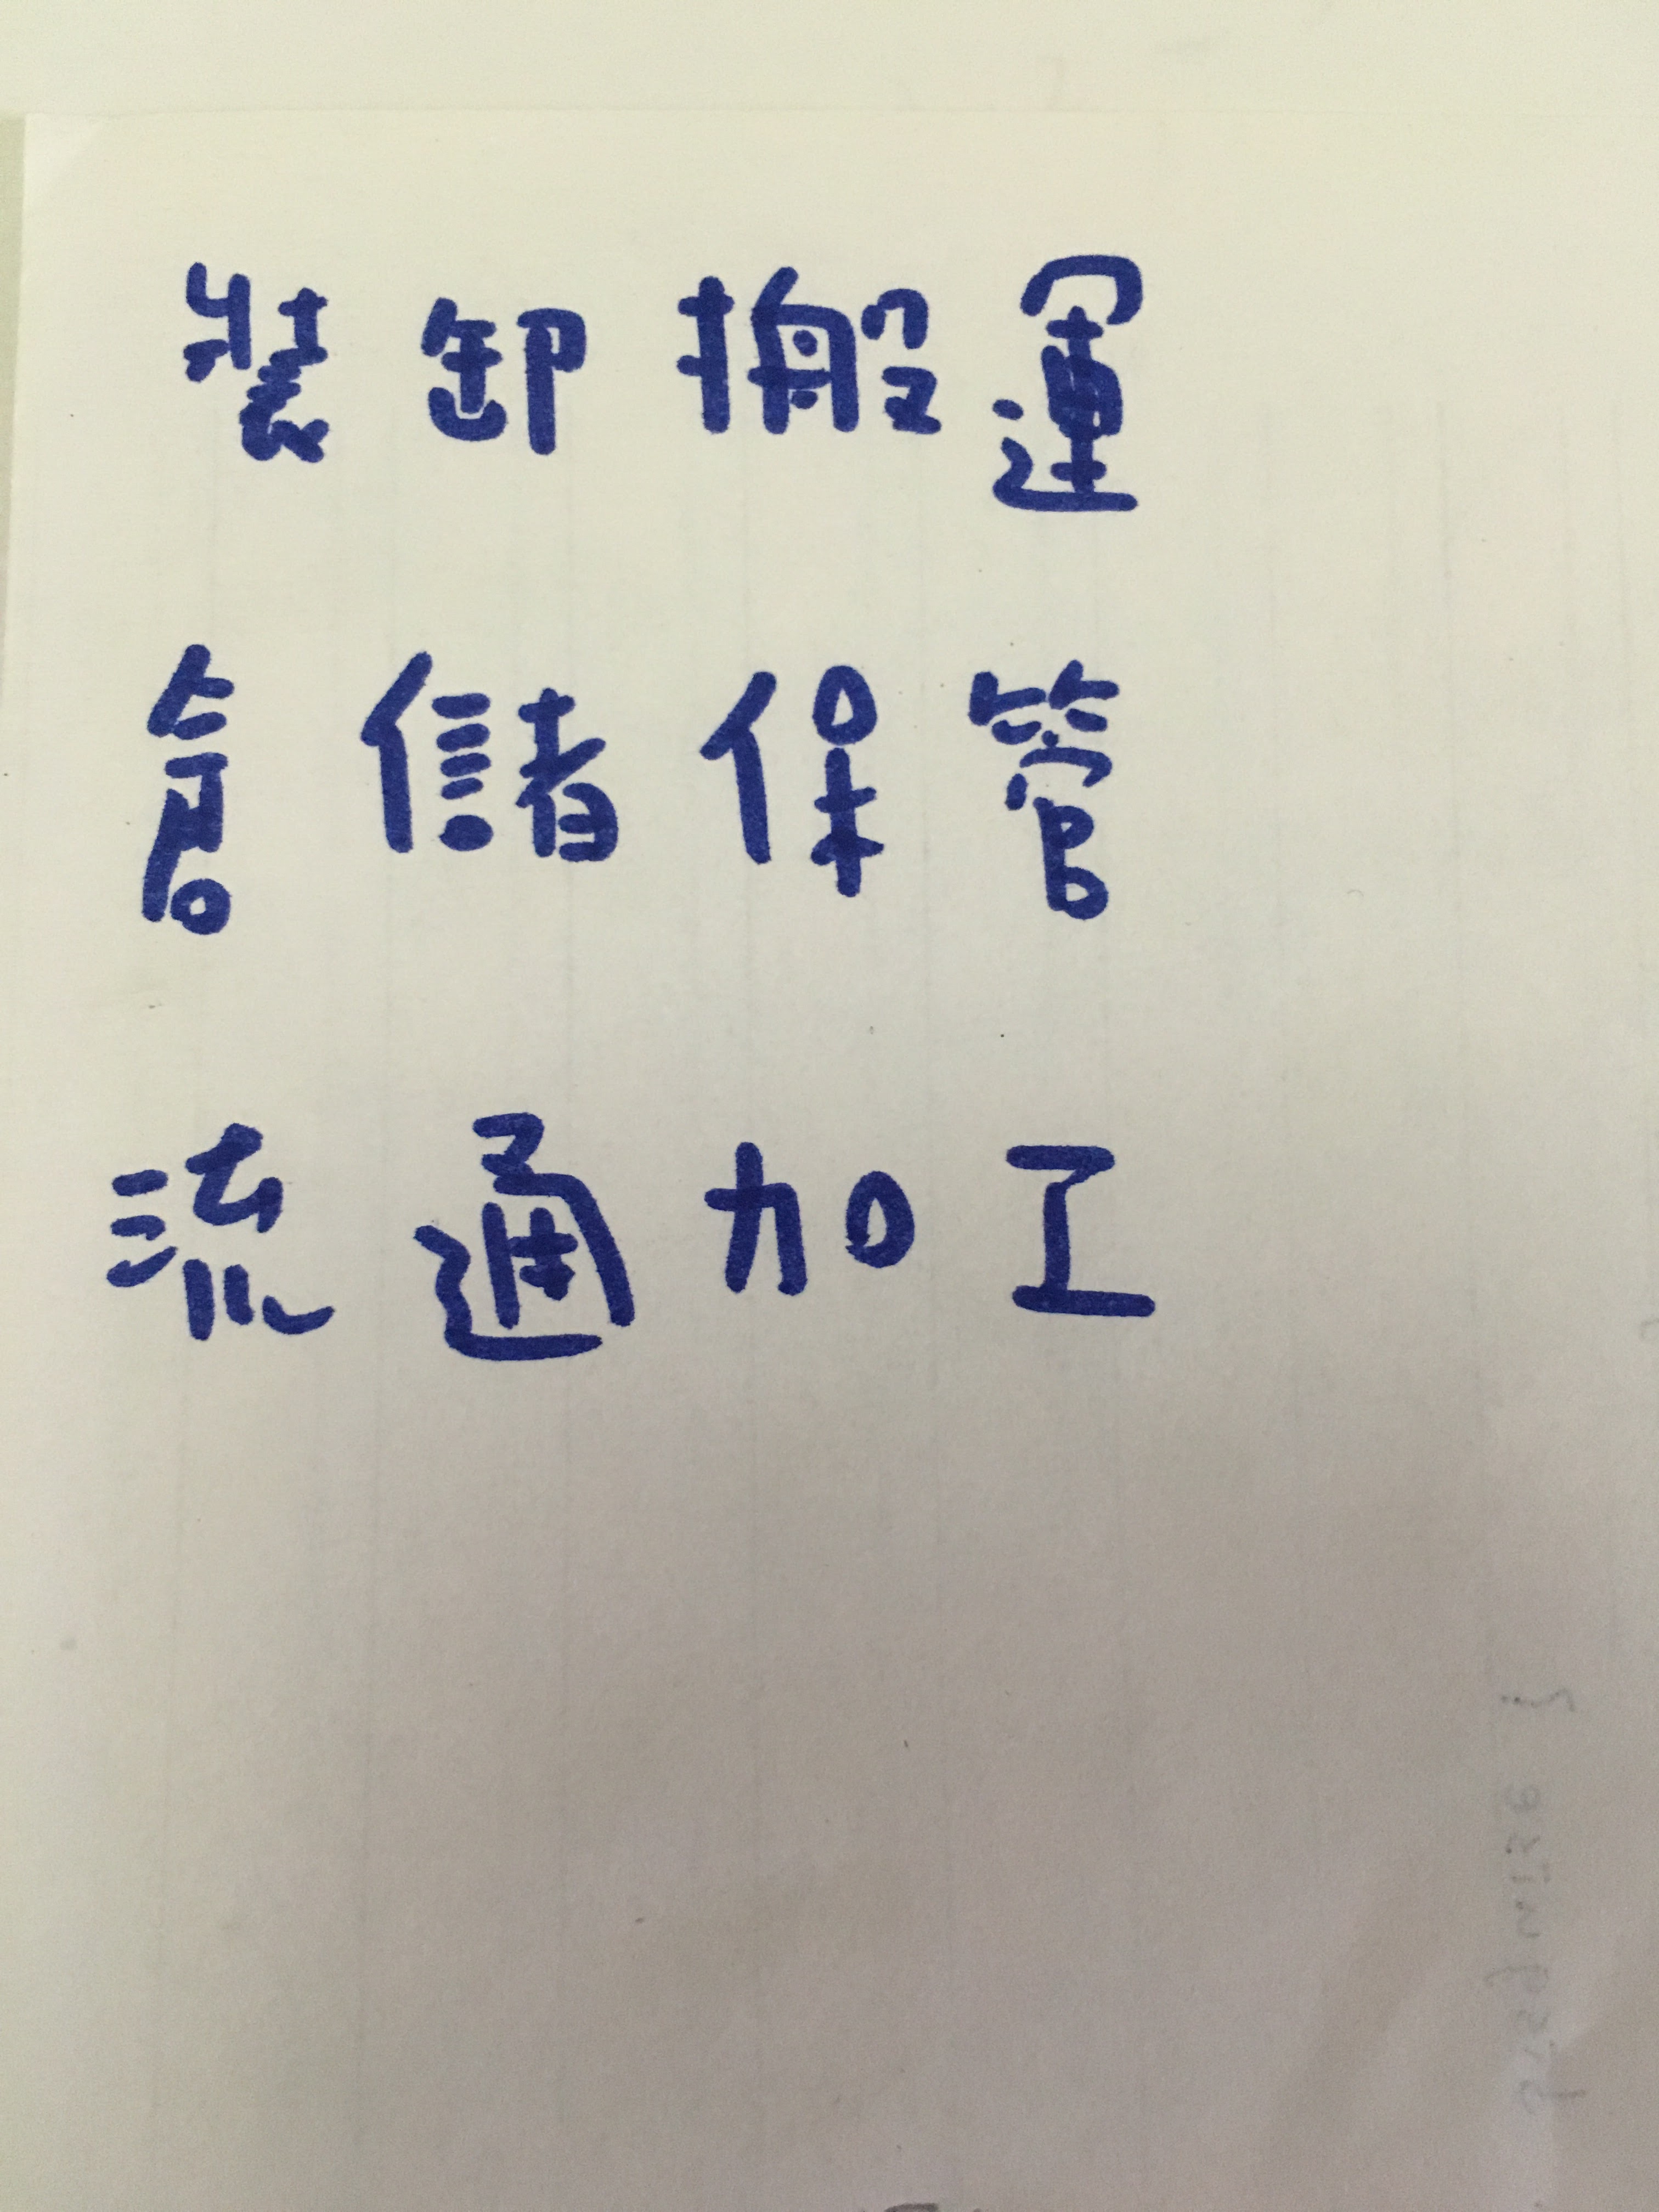 裝卸搬運
倉儲保管
流通加工